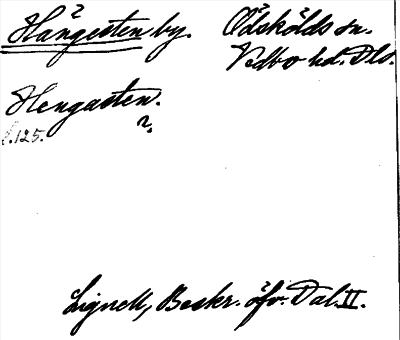 Hängesten by. Ödskölds sn.
Vedbo hd. Dls.
Hengasten.
s. 125.
2.
Lignell, Beskr. öfv. Dal. II.